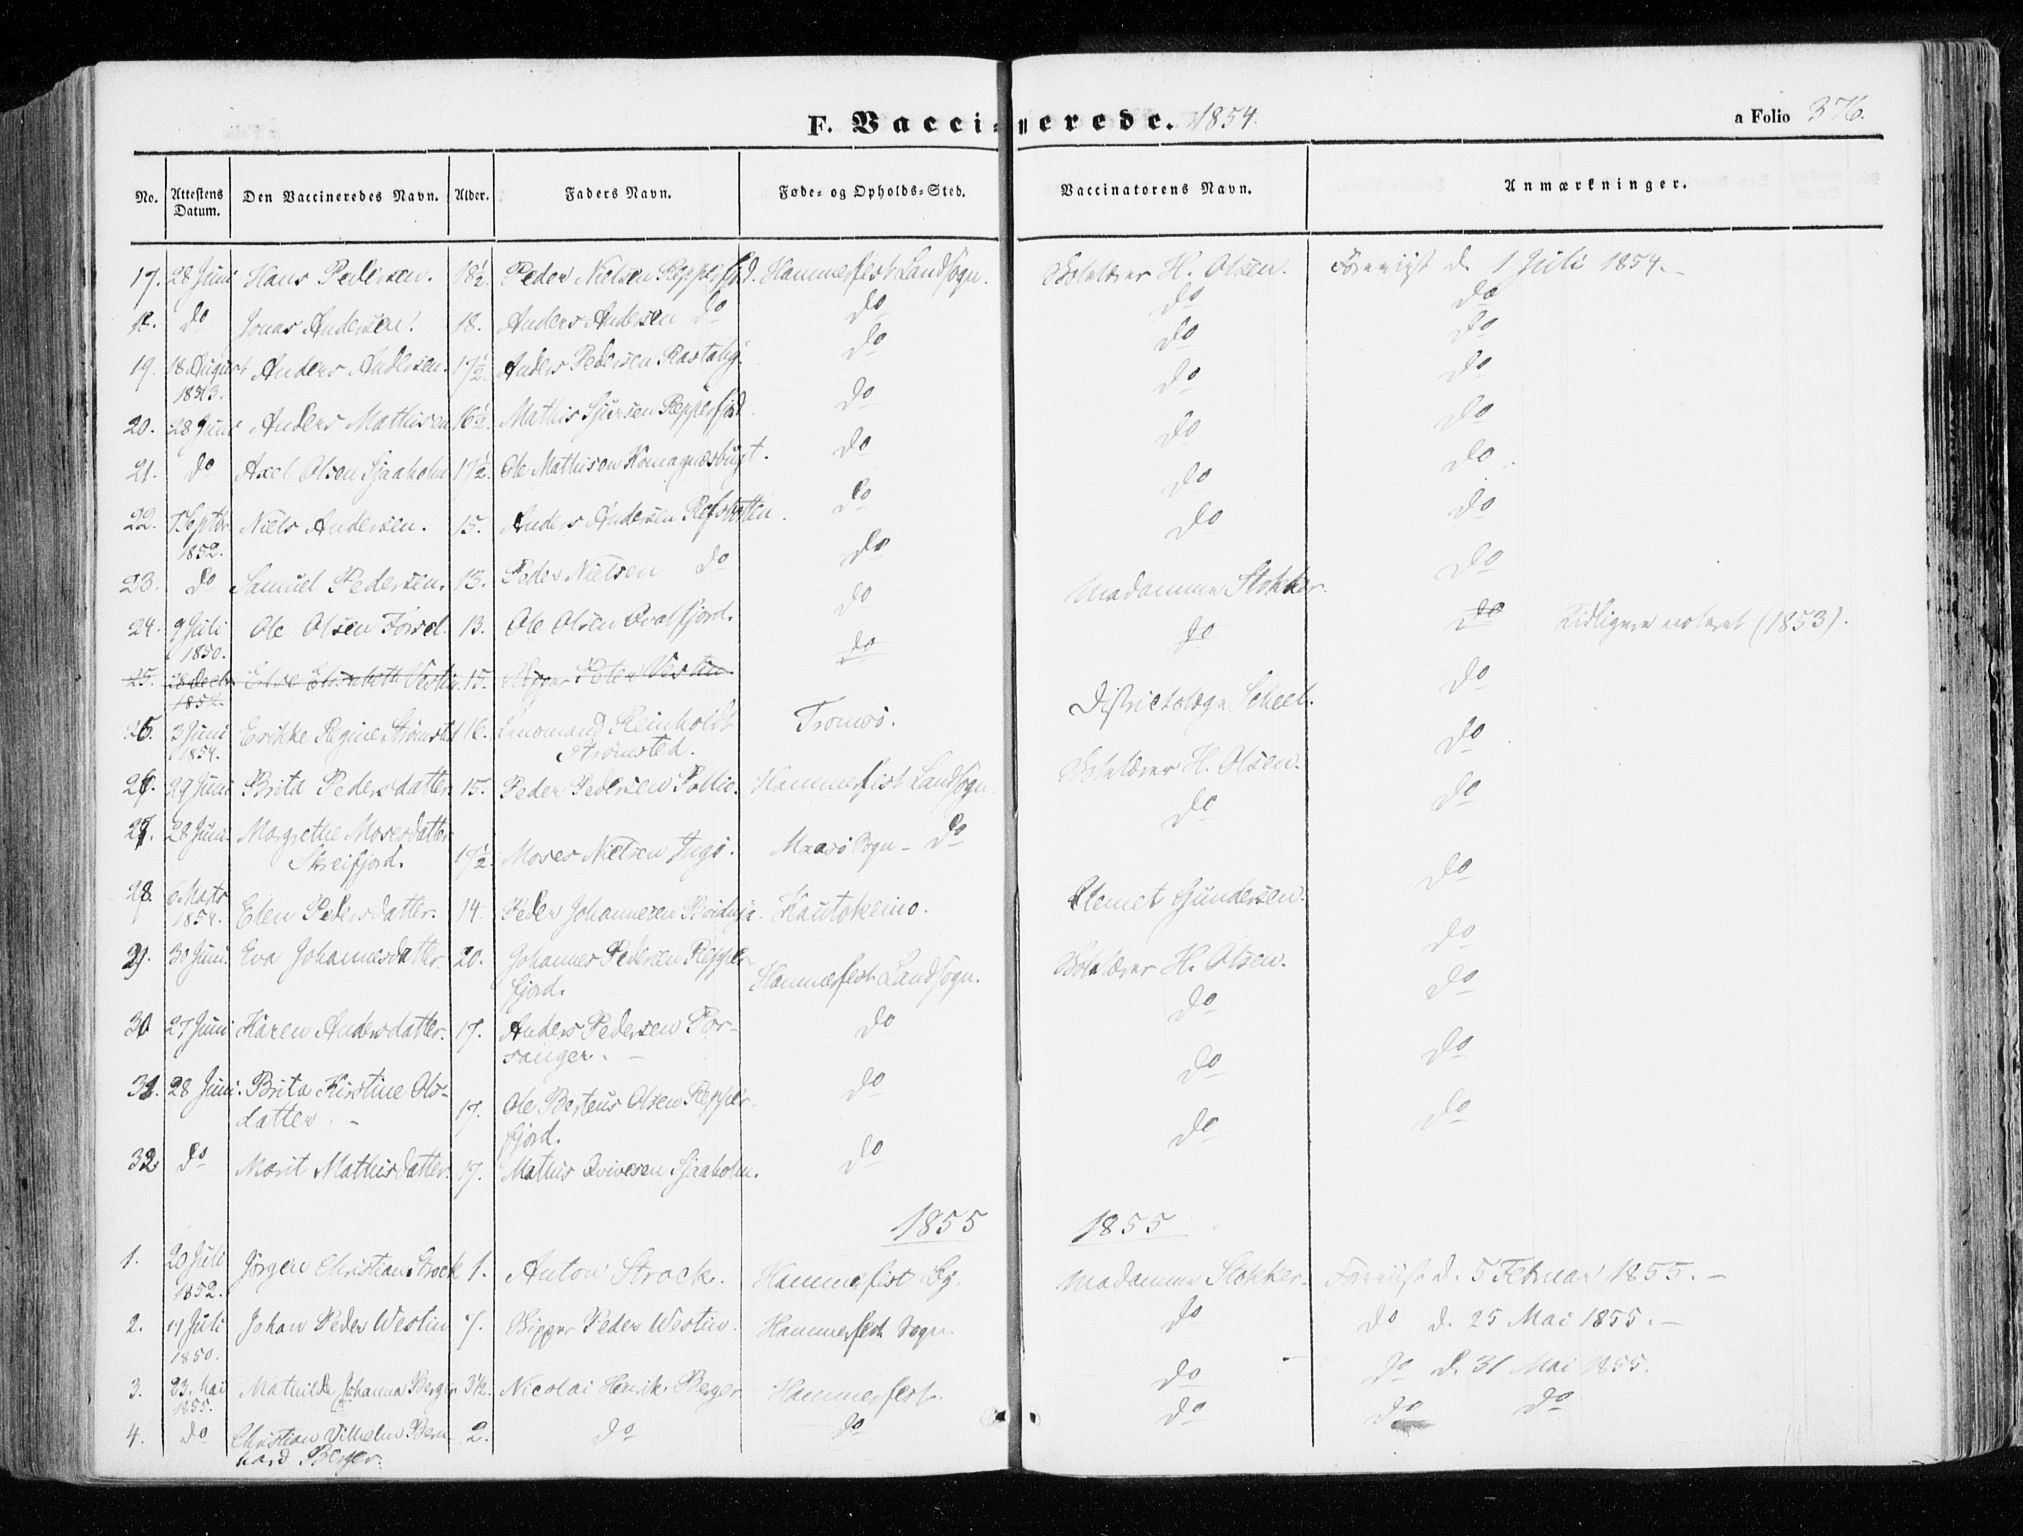 F. Vaccinerede. 1854.
a Folio 376.
No. Attestens Datum. Den Vaccineredes Navn. Alder. Faders Navn. Føde- og Opholds-Sted. Vaccinatorens Navn. Anmærkninger.
17. 28 Juni Hans Pedersen. 18½. Peder Nielsen Repperfjd. Hammerfest Landsogn. Skolelærer H. Olsen. d. 1 Juli 1854.
18. do Jonas Andersen. 18. Anders Andersen do do do do
19. 18 August 1853. Anders Andersen. 17½. Anders Pedersen do do do
20. 28 Juni Anders Mathisen 16½. Mathis Sjursen Repperfjd. do do do
21. do Axel Olsen Sjaaholm 17½. Ole Mathisen Komagnæsbugt. do do do
22. Septbr 1852. Niels Andersen. 15. Anders Andersen Refsbotten. do do do
23. do Samuel Pedersen. 13. Peder Nielsen do do do do
24. 9 Juli 1850. Ole Olsen Forsel. 13. Ole Olsen Qvalfjord. do Madamme Stokker. do
25. 15. Peter Vestin do do do Tidligere noteret (1853).
25. 3 Juni 1854. Erikke Regine Strømsted 16. Lensmand Reinholdt Strømsted. Tromsø. Districtslæge Scheel. do
26. 29 Juni Brita Pedersdatter 15. Peder Pedersen Pollie. Hammerfest Landsogn. Skolelærer H. Olsen. do
27. 28 Juni Margrethe Mosesdatter Skreifjord. 17½. Moses Nielsen Ingø. Maasø Sogn - do do do
28. Marts 1854. Elen Pedersdatter. 14. Peder Johannesen Kautokeino. Klemet Gundersen. do
29. 30 Juni. Eva Johannesdatter. 20. Johannes Pedersen Repperfjord. Hammerfest Landsogn. Skolelærer H. Olsen. do
30 27 Juni Karen Andersdatter. 17. Anders Pedersen Porsanger. do do do
31. 28 Juni. Brita Kirstine Olsdatter. 17. Ole Berteus Olsen Repperfjord. do do do
32 do Marit Mathisdatter. 17. Mathis Sjaaholm. do do do
1855 1855
1. 20 Juli 1852. Jörgen Christian Strock 1. Anton Strock. Hammerfest By. Madamme Stokker. d. 5 Februar 1855.
2. 17 Juli 1850. Johan Peder Westin 7. Peder Westin. Hammerfest Sogn. do do d. 25 Mai 1855.
3. 23. Mai 1855. Mathilde Johanna Berger 3½. Nicolai Henrik Berger Hammerfest. do do d. 31 Mai 1855.
4. do Christian Vilhelm Bernhard Berger. 2. do do do do do